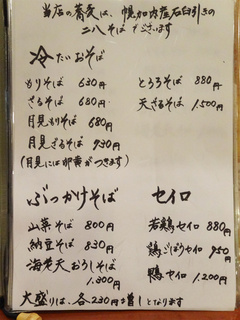 当店の蕎麦は、幌加内産石臼引きの
二八そばでございます
冷たいおそば
もりそば 630円
ざるそば 680円
月見もりそば 680円
月見ざるそば 730円
(月見には卵黄がつきます)
とろろそば 880円
天ざるそば 1,500円
ぶっかけそば
山菜そば 800円
納豆そば 830円
海老天おろしそば
1,300円
セイロ
若鶏セイロ 880円
鶏ごぼうセイロ 950円
鴨セイロ 1,200円
大盛りは、各230円増しとなります